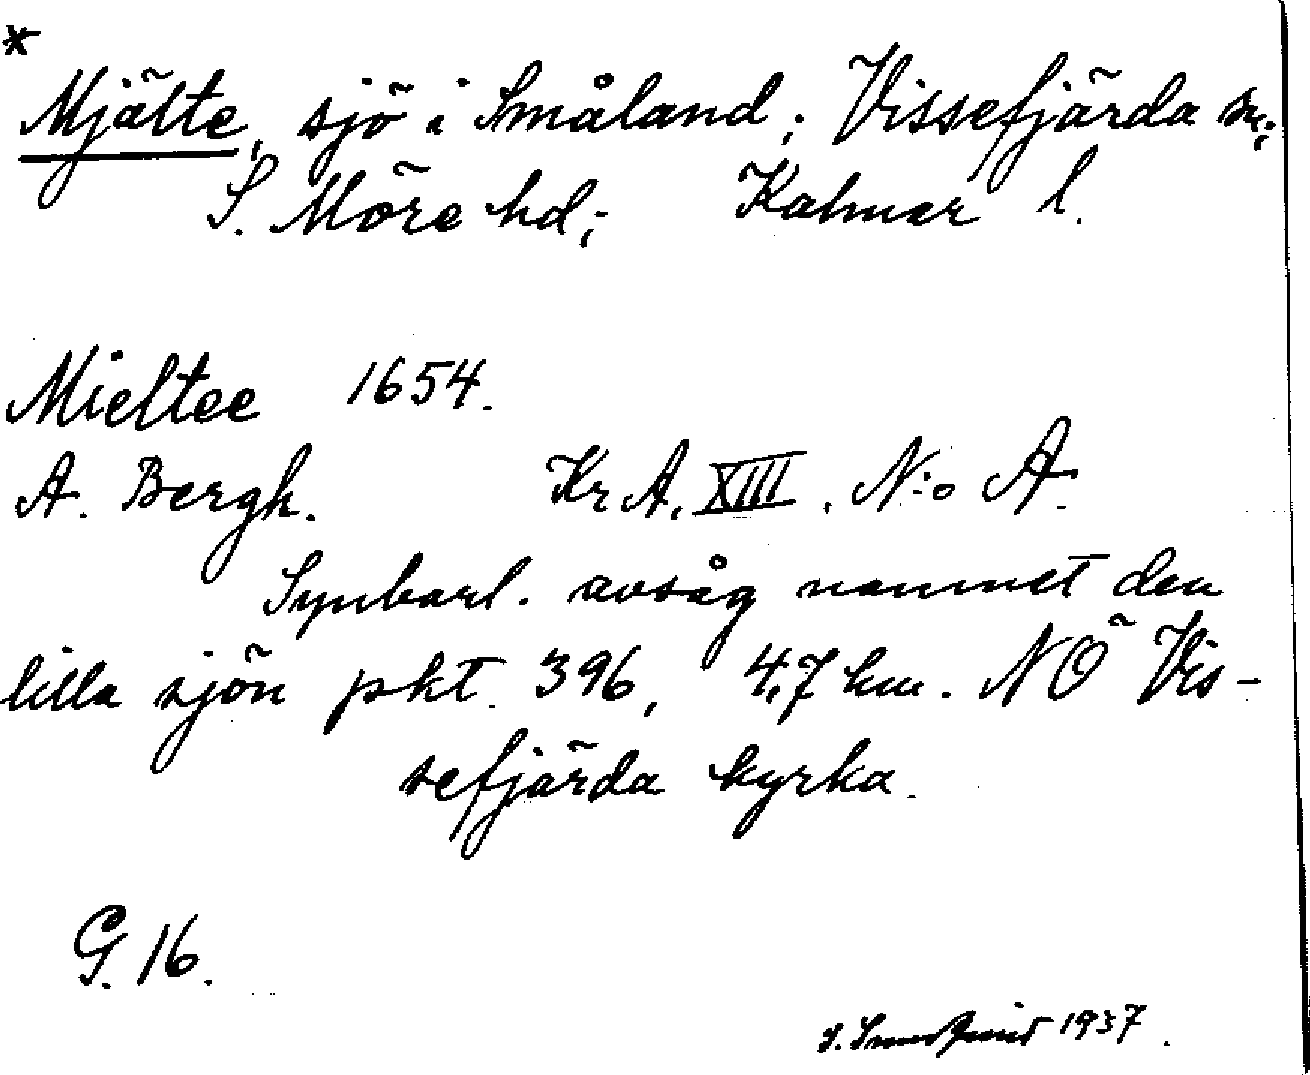 *
Mjälte, sjö i Småland; Vissefjärda sn;
S. Möre hd; Kalmar l.
Mieltee 1654.
A. Bergh. KrA. XIII. N:o A.
Synbarl. avsåg namnet den
lilla sjön pkt. 396, 4,7 km. NÖ Vis-
sefjärda kyrka.
G. 16.
1937.